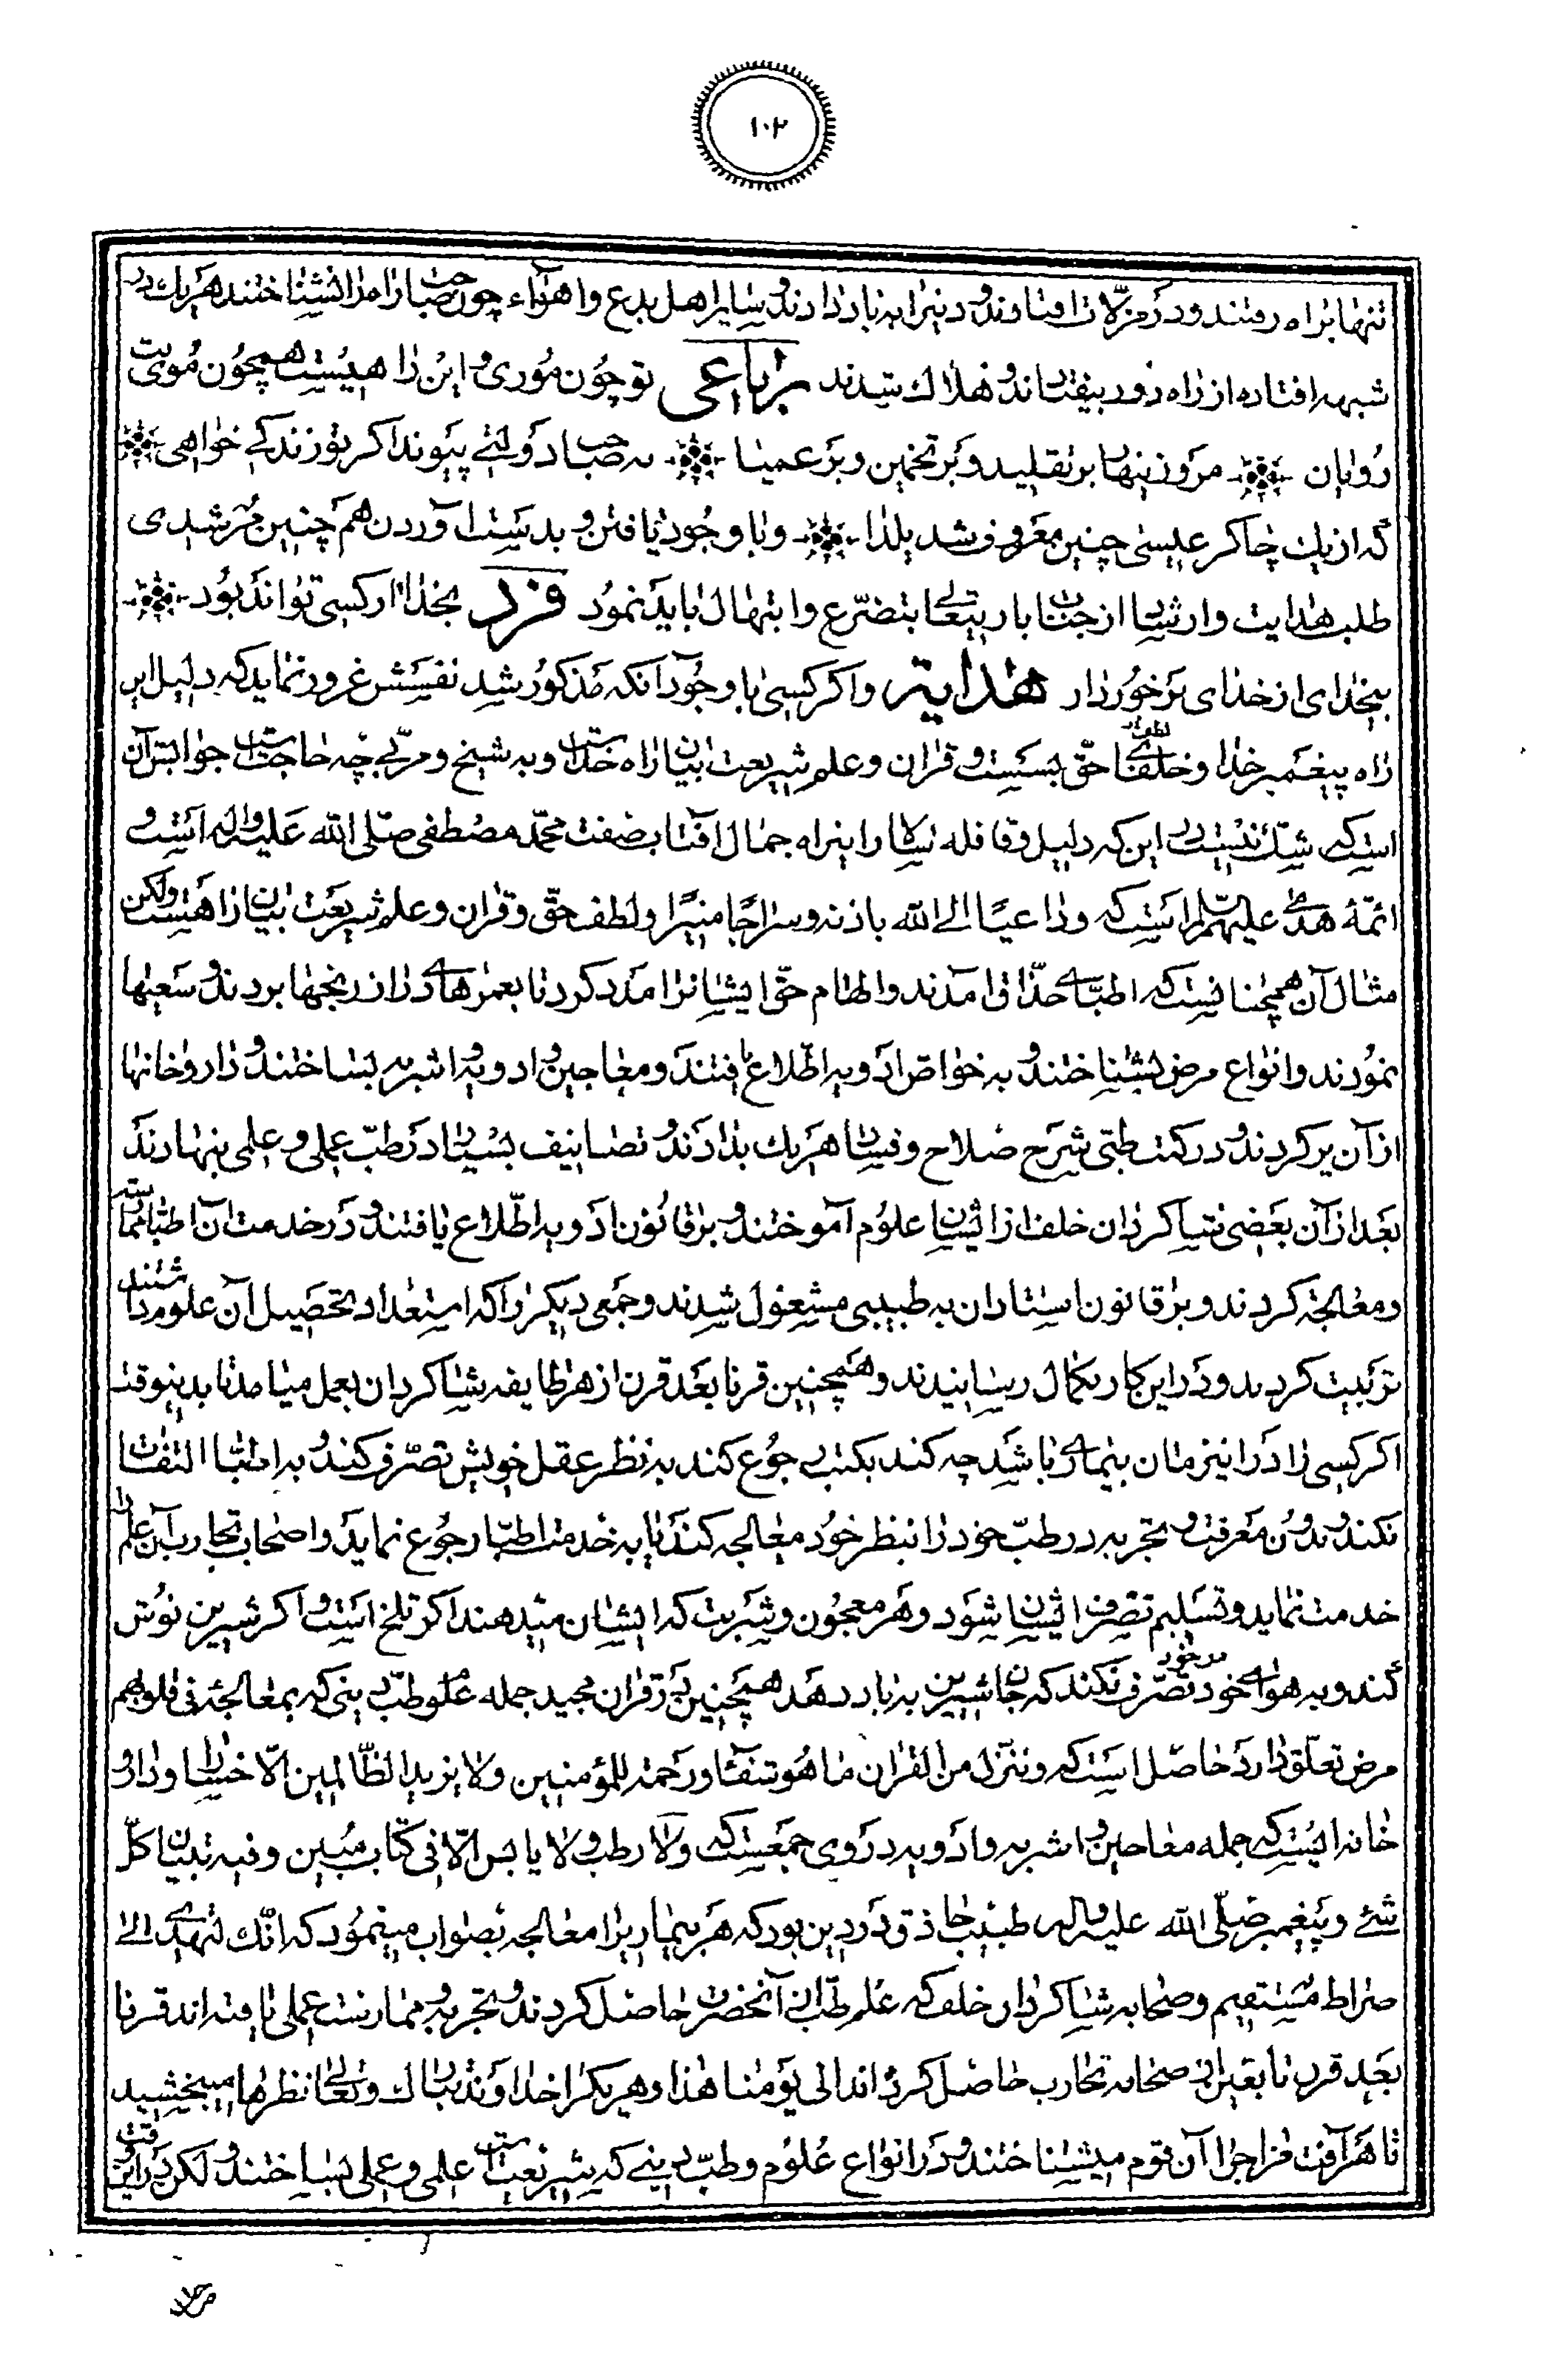 ۱۰۲
تنها براه رفتند و در مزلّات افتادند و دین را بباد دادند و سایر اهل بدع و اهواء چون صاحب راهرا نشناختند هریک در
شبهه افتاده از راه دور بیفتادند و هلاک شدند رباعی تو چون موری و این راهیست همچون موی بت
رویان مرو زینهار بر تقلید و بر تخمین و بر عمیا به صاحب دولتی پیوند اگر تو زندگی خواهی
که از یک چاکر عیسی چنین معروف شد یلدا و با وجود یافتن و بدست آوردن هم چنین مرشدی
طلب هدایت و ارشاد از جناب باریتعالی بتضرّع و ابتهال باید نمود فرد بخدا ار کسی تواند بود
بیخدای از خدای برخوردار هدایة و اگر کسی با وجود آنکه مذکور شد نفسش غرور نماید که دلیل این
راه پیغمبر خدا و خلفای حقّ بسست و قران و علم شریعت بیان راه خداست و به شیخ و مربّی چه حاجتست جوابش آن
استکه شک نیست در این که دلیل و قافله سالار اینراه جمال افتاب صفت محمّد مصطفی صلی الله علیه و اله است و
ائمّهٔ هدی علیهم السلام راستکه و داعیًا الی الله باذنه و سراجًا منیرًا و لطف حقّ و قران و علم شریعت بیان راهست ولکن
مثال آن همچنانیست که اطبّای حذّاق آمدند و الهام حقّ ایشانرا مدد کرد تا بعمرهای دراز رنجها بردند و سعیها
نمودند و انواع مرض بشناختند و به خواصّ ادویه اطّلاع یافتند و معاجین و ادویه و اشربه بساختند و داروخانها
از آن پر کردند و در کتب طبّی شرح صلاح و فساد هریک بدادند و تصانیف بسیار در طبّ عملی و علمی بنهادند
بعد از آن بعضی شاگردان خلف از ایشان علوم آموختند و بر قانون ادویه اطّلاع یافتند و در خدمت آن اطبّا ممارست
و معالجة کردند و بر قانون استادان به طبیبی مشغول شدند و جمعی دیگر را که استعداد تحصیل آن علوم داشتند
تربیت کردند و در این کار بکمال رسانیدند و همچنین قرنا بعد قرن از هر طایفه شاگردان بعمل میامد تا بدینوقت
اگر کسی را در اینزمان بیماری باشد چه کند بکتب رجوع کند به نظر عقل خویش تصرّف کند و به اطبّا التفات
نکند و بدون معرفت و تجربه در طبّ خود را بنظر خود معالجه کند یا به خدمت اطبّا رجوع نماید و اصحاب تجارب آن علم را
خدمت نماید و تسلیم تصرف ایشان شود و هر معجون و شربت که ایشان میدهند اگر تلخ است و اگر شیرین نوش
کند و به هوای خود در خود تصرّف نکند که جان شیرین به باد دهد همچنین در قران مجید جمله علوم طبّ دینی که بمعالجه فی قلوبهم
مرض تعلّق دارد حاصل استکه و ننزّل من القران ما هو شفاء و رحمة للمؤمنین و لا یزید الظّالمین الّا خسارا و دارو
خانه ایست که جمله معاجین و اشربه و ادویه در وی جمعست که و لا رطب و لا یابس الّا فی کتاب مبین و فیه تبیان کلّ
شئ و پیغمبر صلّی الله علیه و اله طبیب حاذق در دین بود که هر بیمار را معالجه بصواب میفرمود که انّک لتهدی الی
صراط مستقیم و صحابه شاگردان خلف که علم طبّ از آنحضرت حاصل کردند و تجربه و ممارست عملی یافته اند قرنا
بعد قرن تابعین از صحابه تجارب حاصل کرده اند الی یومنا هذا و هریک را خداوند تبارک و تعالی نظرها میبخشید
تا هر آفت مزاجرا آن قوم میشناختند و در انواع علوم و طبّ دینی که شریعتست علمی و عملی بساختند و لکن در این وقت